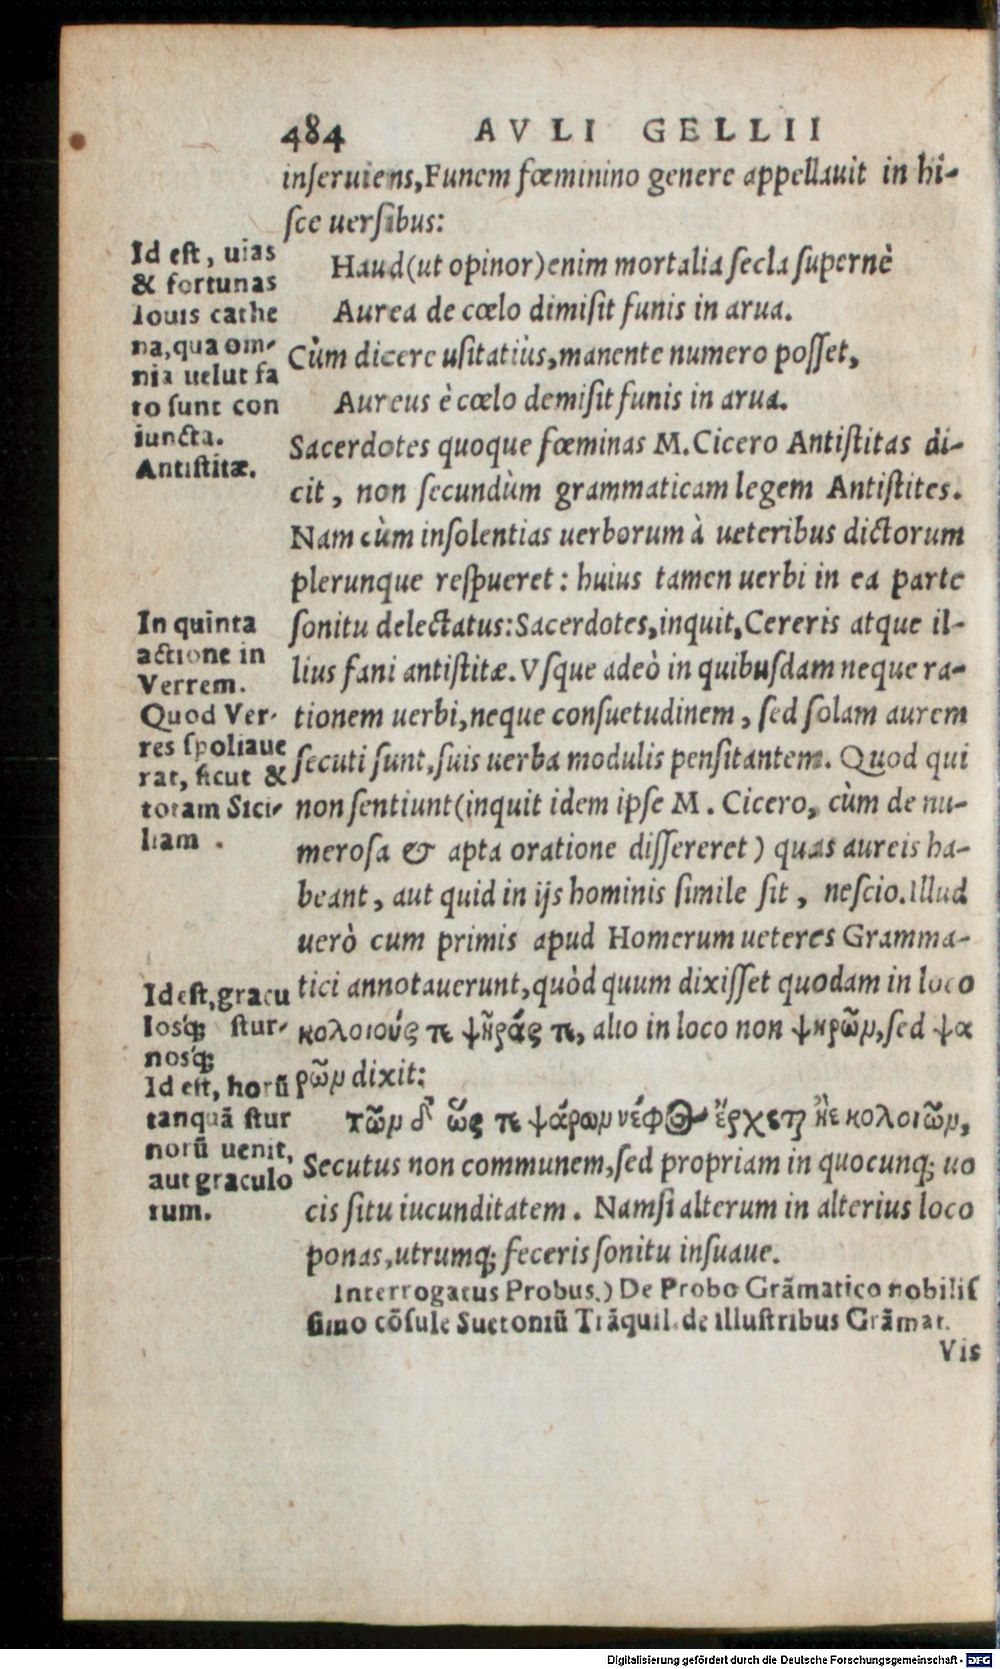 484 AVLI GELLII
inſeruiens, Funem fœminino genere appellauit in hi-
ſce uerſibus:
Haud (ut opinor) enim mortalia ſecla ſupernè
Aurea de cœlo dimiſit funis in arua.
Cùm dicere uſitatiùs, manente numero poſſet,
Aureus è cœlo demiſit funis in arua.
Sacerdotes quoque fœminas M. Cicero Antiſtitas di-
cit, non ſecundùm grammaticam legem Antiſtites.
Nam cùm inſolentias uerborum à ueteribus dictorum
plerunque reſpueret: huius tamen uerbi in ea parte
ſonitu delectatus: Sacerdotes, inquit, Cereris atque il-
lius fani antiſtitæ. Vſque adeò in quibuſdam neque ra-
tionem uerbi, neque conſuetudinem, ſed ſolam aurem
ſecuti ſunt, ſuis uerba modulis penſitantem. Quod qui
non ſentiunt (inquit idem ipſe M. Cicero, cùm de nu-
meroſa & apta oratione diſſereret) quas aureis ha-
beant, aut quid in ijs hominis ſimile ſit, neſcio. Illud
uerò cum primis apud Homerum ueteres Gramma-
tici annotauerunt, quòd quum dixiſſet quodam in loco
κολοιούς τε ψῆράς τε, alio in loco non ψηρῶν, ſed ψα
ρῶν dixit:
τῶν δ' ὥς τε ψάρων νέφος ἔρχεται ἠὲ κολοιῶν,
Secutus non communem, ſed propriam in quocunq; uo
cis ſitu iucunditatem. Nam ſi alterum in alterius loco
ponas, utrumq; feceris ſonitu inſuaue.
Interrogatus Probus.) De Probo Grãmatico nobiliſ
ſimo cõſule Suetoniũ Trãquil. de illuſtribus Grãmat.
Vis
Id eſt, uias
& fortunas
Iouis cathe
na, qua om-
nia uelut fa
to ſunt con
iuncta.
Antiſtitæ.
In quinta
actione in
Verrem.
Quod Ver-
res ſpoliaue
rat, ſicut &
totam Sici-
liam.
Id eſt, gracu
loſq́; ſtur-
noſq́;
Id eſt, horũ
tanquã ſtur
norũ uenit,
aut graculo
rum.
Digitalisierung gefördert durch die Deutsche Forschungsgemeinschaft - DFG